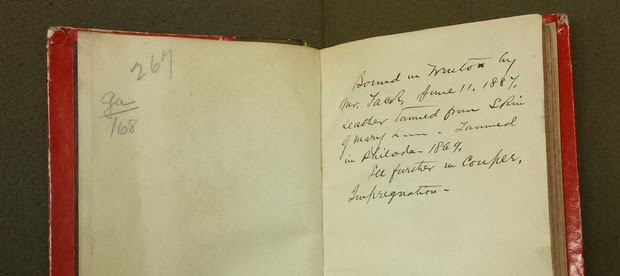 267
ga
168
Bound in Trenton by
Mr. Jacob, June 11, 1887.
Leather tanned from Skin
of Mary - Tanned
in Philada - 1869.
See further in Couper,
Impregnation -